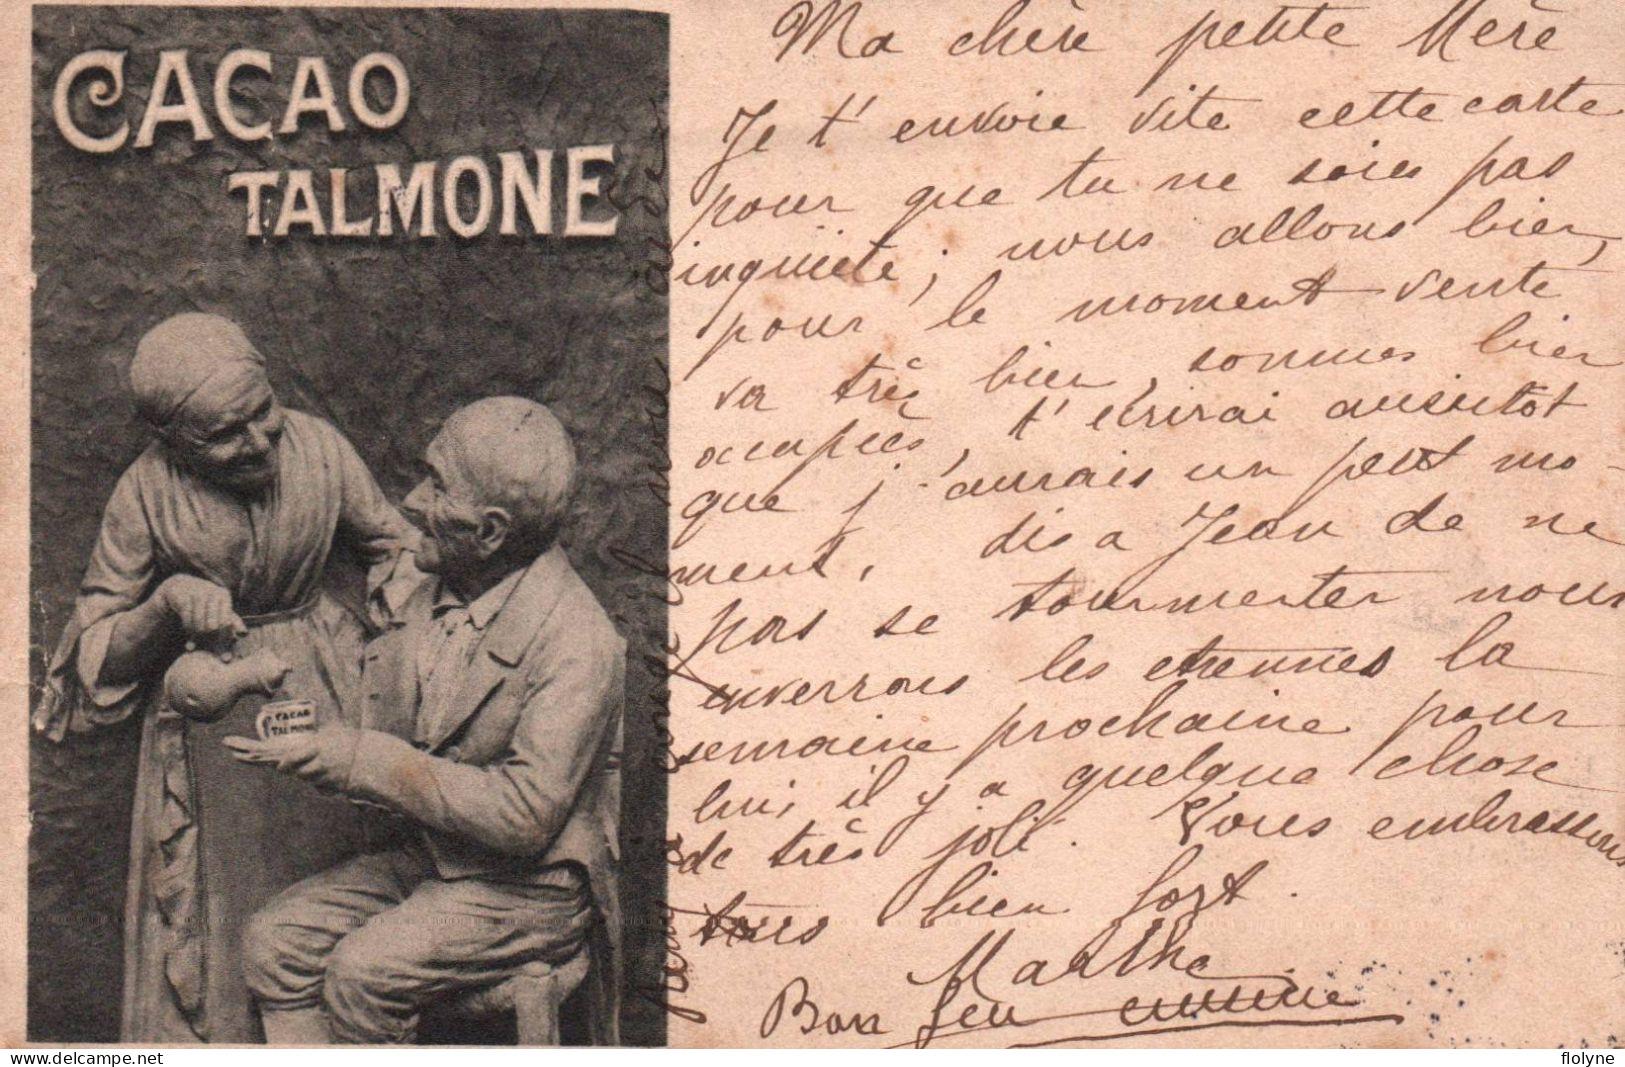 CACAO
TALMONE
CACAO
TALMONE
Ma chère petite Mère
Je t'envoie vite cette carte
pour que tu ne soies pas
inquiète; nous allons bien,
pour le moment vente
va très bien, sommes bien
occupées, t'écrirai aussitôt
que j'aurais un petit mo-
ment, dis a Jean de ne
pas se tourmenter nous
enverrons les étrennes la
semaine prochaine pour
lui, il y a quelque chose
de très joli. Vous embrassons
tous bien fort.
Marthe
Bon
flolyne